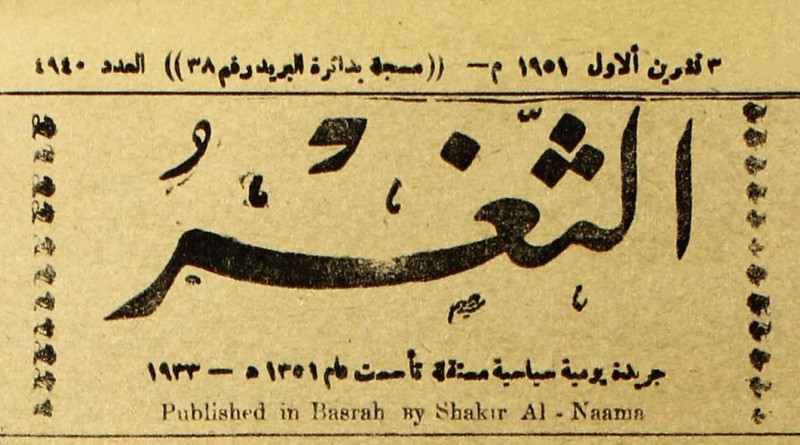 ٣ تشرين الاول ١٩٥١ م— ((مسجلة بدائرة البريد رقم ٣٨)) العدد ٤٩٤٠
الثَّغْرُ
جريدة يومية سياسية مستقلة تأسست عام ١٣٥١ ه — ١٩٣٣
Published in Basrah By Shakir Al - Naama